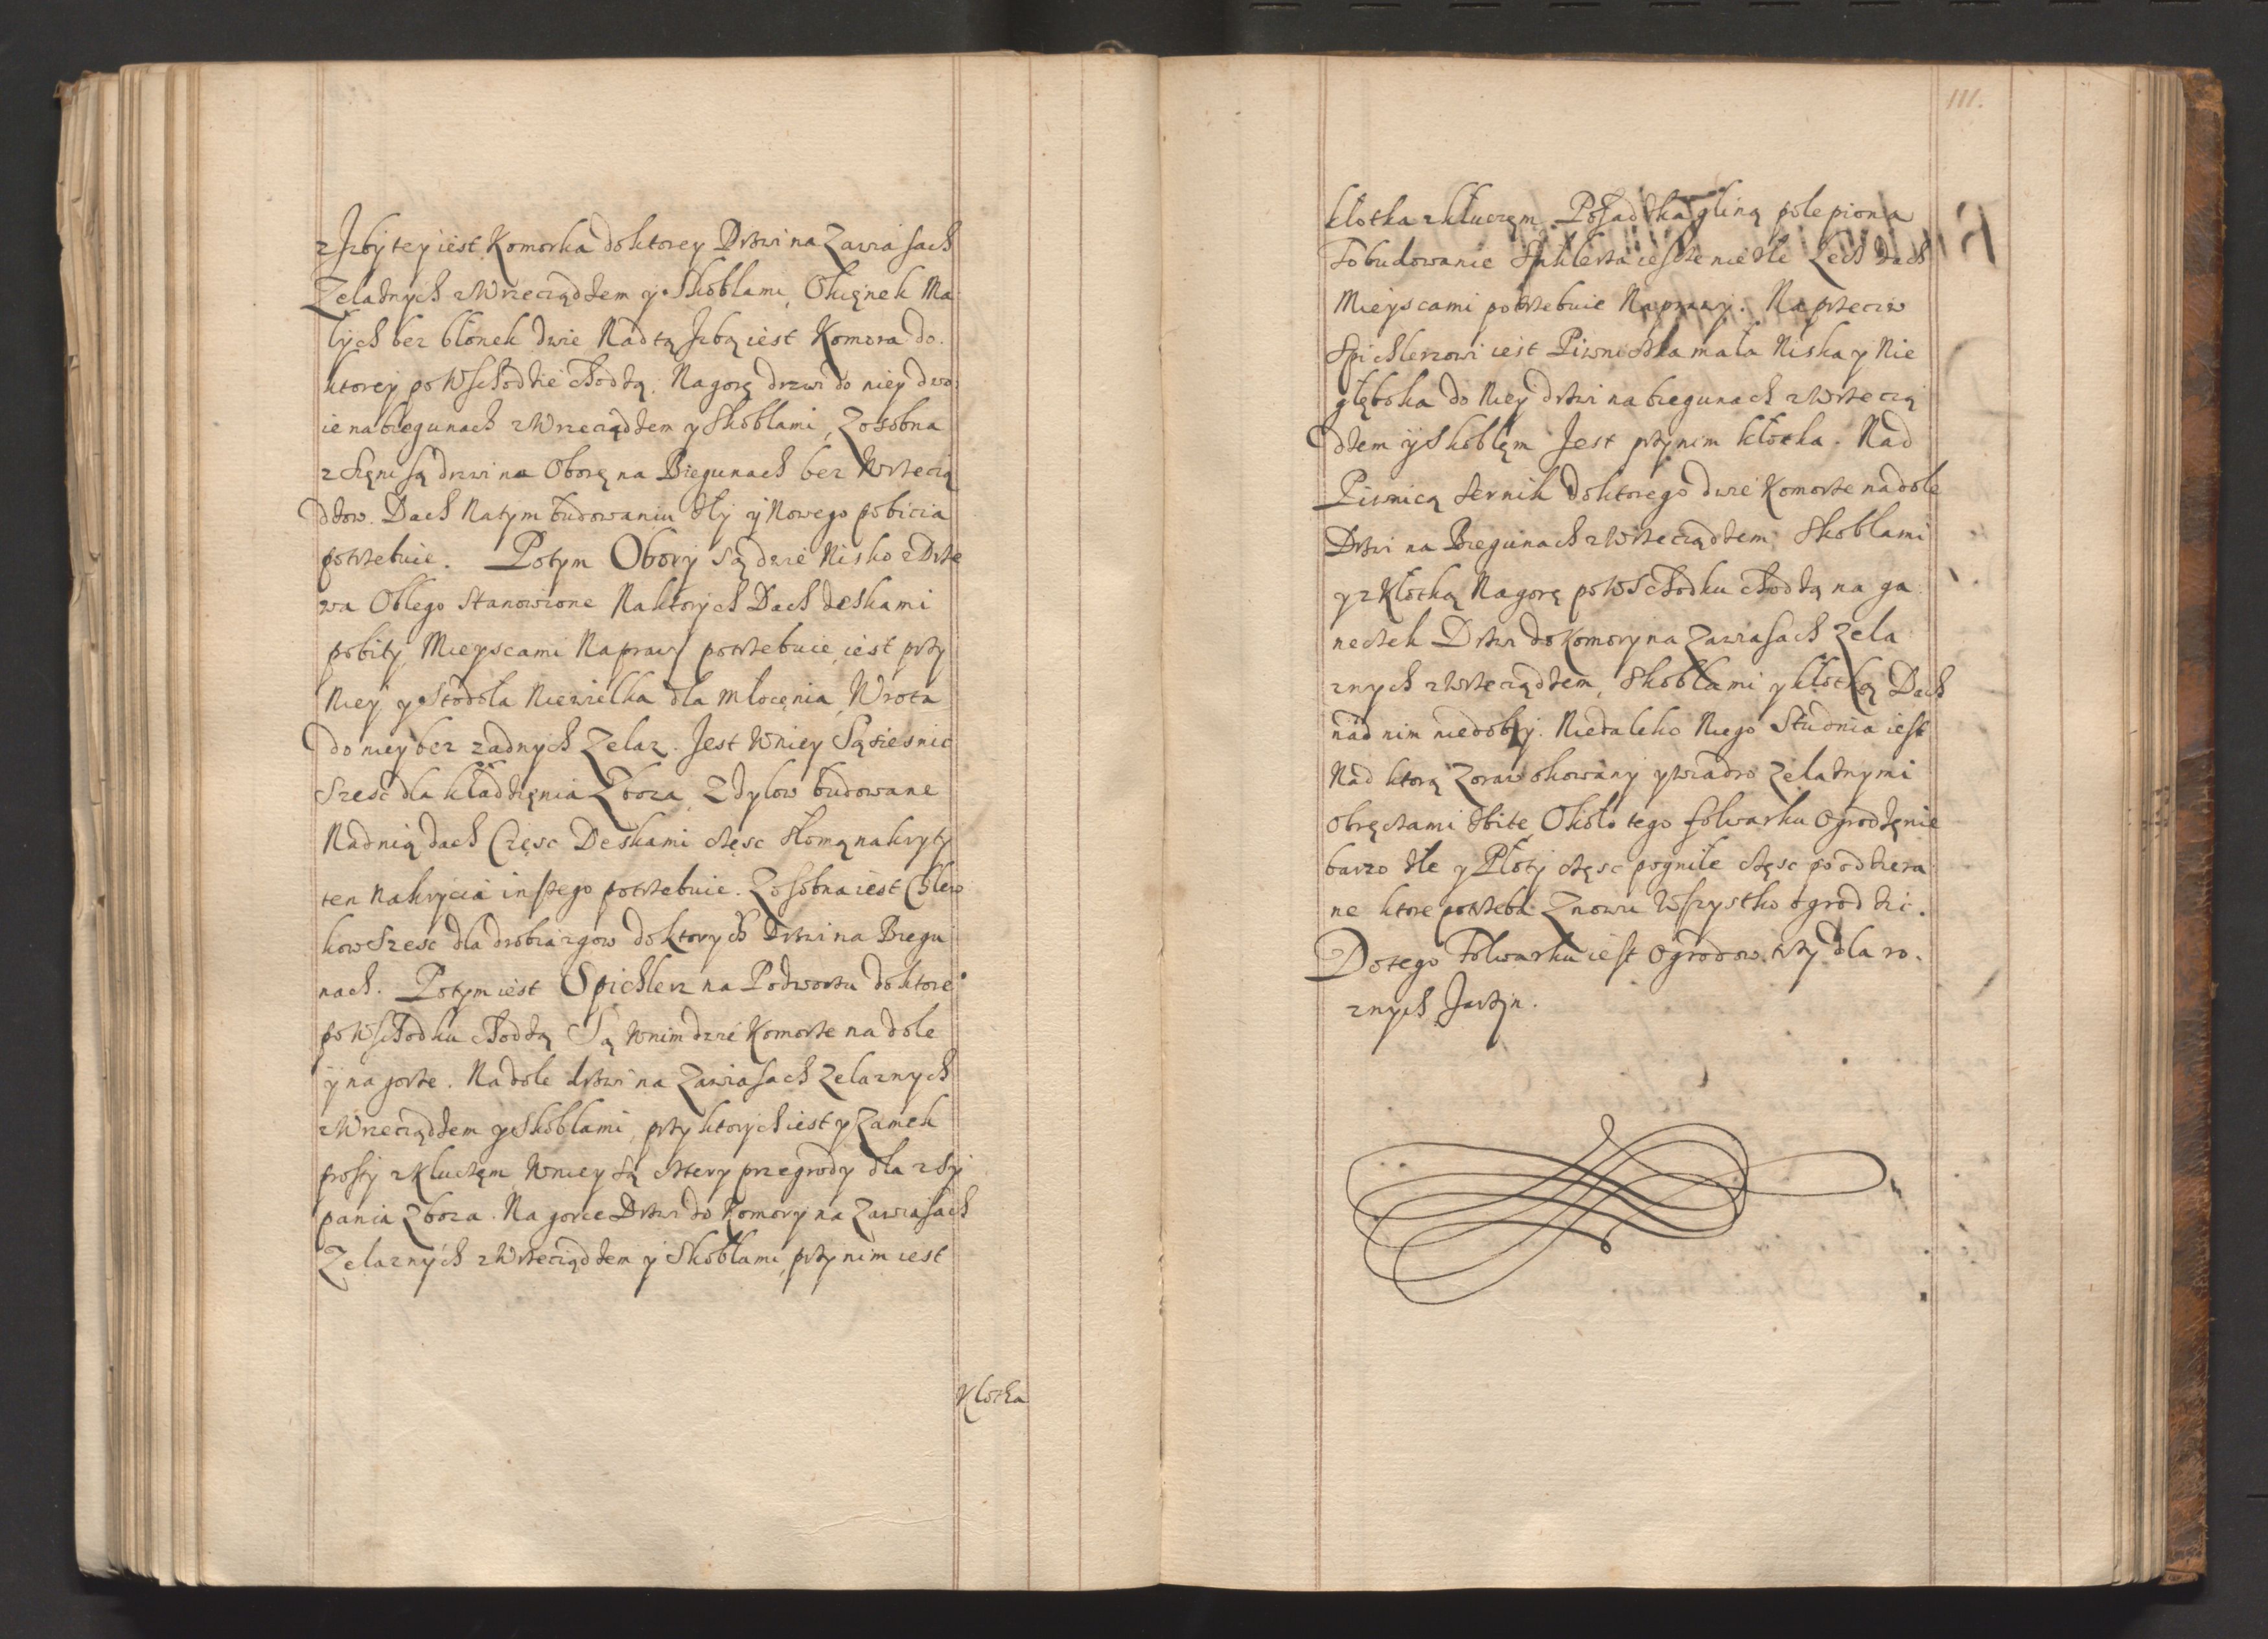 z Jzby tey iest Komorka do ktorey Drzwi na Zawiasach
Zelaznych z Wrzeciądzem y Skoblami, Okięnek Ma
łych bez błonek dwie Nad tą Jzbą iest Komora do
ktorey po Wschodzie chodzą. Na gorę drzwi do niey dwo
ie na biegunach z Wrzeciądzem y Skoblami, Zosobna
z Sięni są drzwi na Oborę na Biegunach bez Wrzecią
dzow. Dach Na tym budowaniu zły y Nowego pobicia
potrzebuie. Potym Obory są dwie Nisko z Drze
wa Oblego stanowione Na ktorych Dach deskami
pobity, Mieyscami Naprawy potrzebuie, iest przy
Niey y Stodoła Niewielka dla Młocęnia, Wrota
do niey bez zadnych Zelaz. Jest W niey Sąsiesnic
Szesc dla kładzięnia Zboza, Z dylow budowane
Nad nią dach Częsc Deskami częsc słomą nakryty
ten Nakrycia inszego potrzebuie. Zosobna iest Chlew
kow Szesc dla drobiazgow do ktorych Drzwi na Biegu
nach. Potym iest Spichlerz na Podworzu do ktore
po Wschodku chodzą Są W nim dwie Komorze na dole
y na gorze. Na dole drzwi na Zawiasach Zelaznych
z Wrzeciądzem y Skoblami, przy ktorych iest y Zamek
prosty z Kluczęm, W niey są cztery przegrody dla zsy
pania Zboza. Na gorce Drzwi do Komory na Zawiasach
Zelaznych z Wrzeciądzem y Skoblami, przy nim iest
Klotka
111.
klotka z kluczęm. Posadzka gliną polepiona
To budowanie Spiklerza ieszcze nie złe Lecz dach
Mieyscami potrzebuie Naprawy. Na przeciw
Spichlerzowi iest Piwniczka mała Niska y Nie
głęboka do Niey drzwi na biegunach z Wrzecią
dzem y Skoblęm Jest przy nim kłotka. Nad
Piwnicą sernik do ktorego dwie Komorze na dole
Drzwi na Biegunach z Wrzeciądzem, Skoblami
y z Kłotką Na gorę po Wschodku chodzą na ga
neczek Drzwi do Komory na Zawiasach Zela
znych z Wrzeciądzem, Skoblami y kłotką Dach
nad nim niedobry. Niedaleko Niego Studnia iest
Nad ktorą Zoraw okowany y wiadro Zelaznymi
obręczami zbite, Około tego folwarku Ogrodzęnie
barzo złe y Płoty częsc pogniłe częsc poodziera
ne ktore potrzeba Znowu Wszystko ogrodzic.
Do tego Folwarku iest Ogrodow trzy dla ro
znych Jarzyn.